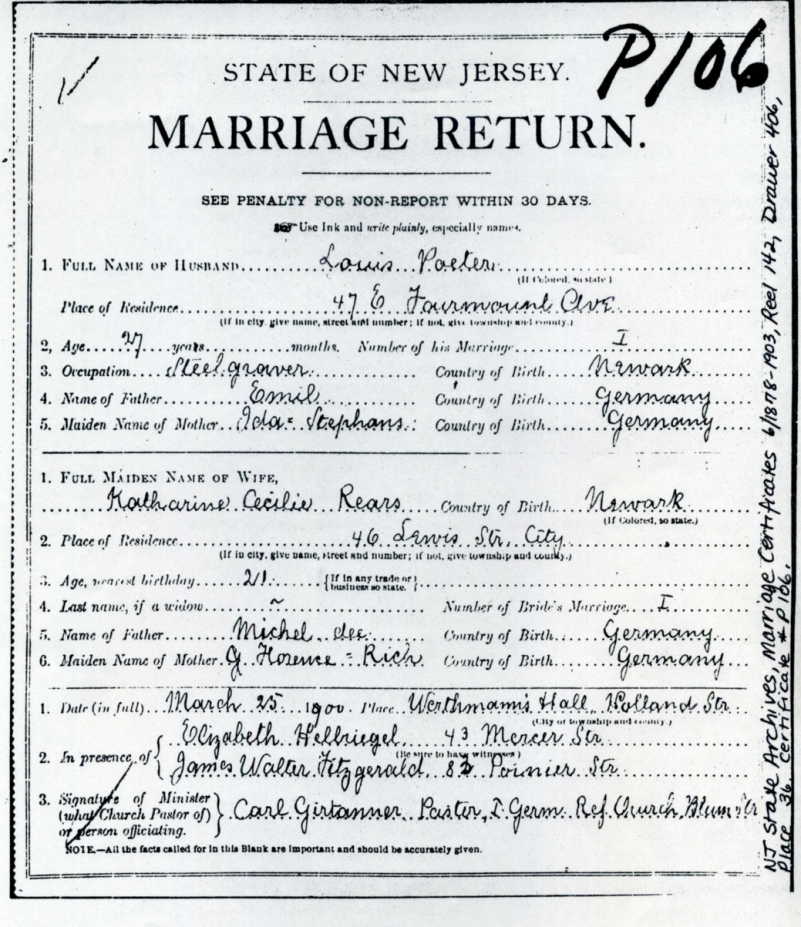 P106
STATE OF NEW JERSEY.
MARRIAGE RETURN.
SEE PENALTY FOR NON-REPORT WITHIN 30 DAYS.
Use Ink and write plainly, especially names.
1. FULL NAME OF HUSBAND Louis Poeter
(If Colored, so state)
Place of Residence 47 E Fairmount Ave
(If in city, give name, street and number; if not, give township and county.)
2, Age 27 years months. Number of his Marriage I
3. Occupation Steel graver Country of Birth Newark
4. Name of Father Emil Country of Birth Germany
5. Maiden Name of Mother Ida Stephans Country of Birth Germany
1. FULL MAIDEN NAME OF WIFE,
Katharine Cecilie Rears Country of Birth Newark
(If Colored, so state.)
2. Place of Residence 46 Lewis Str. City
(If in city, give name, street and number; if not, give township and county.)
3. Age, nearest birthday 21 {If in any trade or business so state.}
4. Last name, if a widow ~ Number of Bride's Marriage I
5. Name of Father Michel Country of Birth Germany
6. Maiden Name of Mother G Florence = Rich Country of Birth Germany
1. Date (in full) March 25 1900 Place Werthmann's Hall, Holland Str.
(City or township and county.)
Elizabeth Helbriegel 43 Mercer Str.
2. In presence of { (Be sure to have witnesses)
James Walter Fitzgerald 82 Poinier Str.
3. Signature of Minister
(what Church Pastor of) } Carl Girtanner Pastor, I. Germ. Ref. Church, Blum Str
or person officiating.
NOTE.—All the facts called for in this Blank are important and should be accurately given.
NJ State Archives, Marriage Certificates 6/1878-1903, Reel 142, Drawer 406,
Place 36. Certificate # P106.